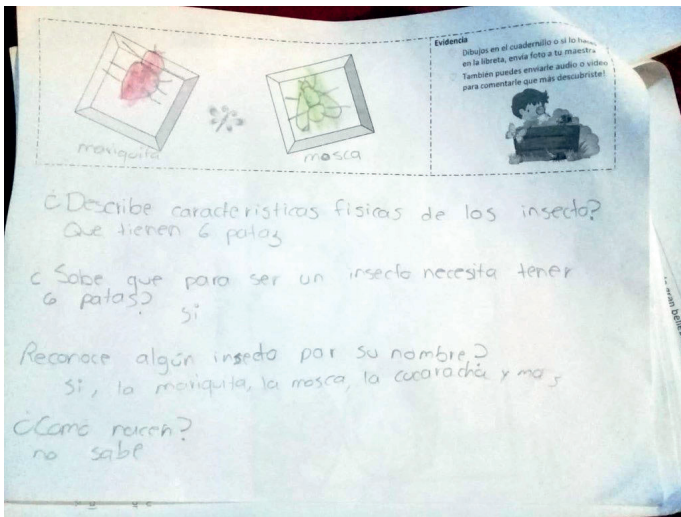 Evidencia
Dibujos en el cuadernillo o si lo
en la libreta, envía foto a tu maestra
También puedes enviarle audio o video
para comentarle que más descubriste!
mariquita
mosca
¿Describe caracteristicas fisicas de los insecto?
Que tienen 6 patas
¿ Sabe que para ser un insecto necesita tener
6 patas?
si
Reconoce algún insecto por su nombre?
Si, la mariquita, la mosca, la cucaracha y mas
¿Como nacen?
no sabe